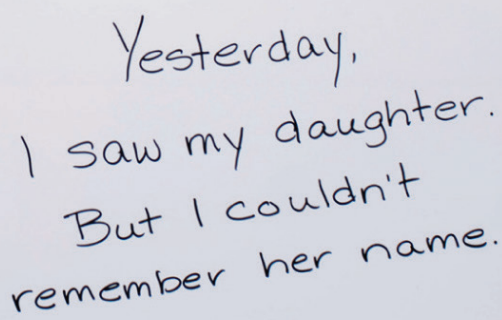 Yesterday,
I saw my daughter.
But I couldn't
remember her name.